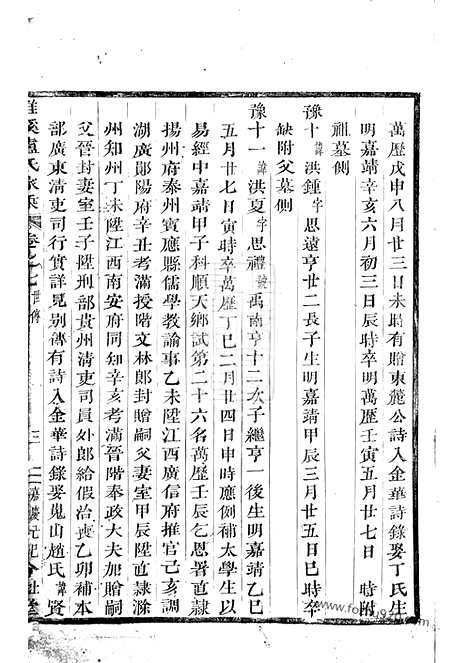 萬歷戊申八月廿三日未時有贈東麓公詩入金華詩錄娶丁氏生
明嘉靖辛亥六月初三日辰時卒明萬歷壬寅五月廿七日 時附
祖墓側
豫十諱洪鍾字思遠亨廿二長子生明嘉靖甲辰三月廿五日巳時卒
缺附父墓側
豫十一諱洪夏字思禮號禹南亨十二次子繼亨一後生明嘉靖乙巳
五月廿七日寅時卒萬歷丁巳二月廿四日申時應例補太學生以
易經中嘉靖甲子科順天鄉試第二十六名萬歷壬辰乞恩署直隸
揚州府泰州寶應縣儒學教諭事乙未陞江西廣信府推官己亥調
湖廣鄖陽府辛丑考滿授階文林郎封贈嗣父妻室甲辰陞直隸滁
州知州丁未陞江西南安府同知辛亥考滿晉階奉政大夫加贈嗣
父晉封妻室壬子陞刑部貴州清吏司員外郎給假治喪乙卯補本
部廣東清吏司行實詳見別傳有詩入金華詩錄娶嵬山趙氏諱賢
盧氏家乘 卷之七 世傳 三